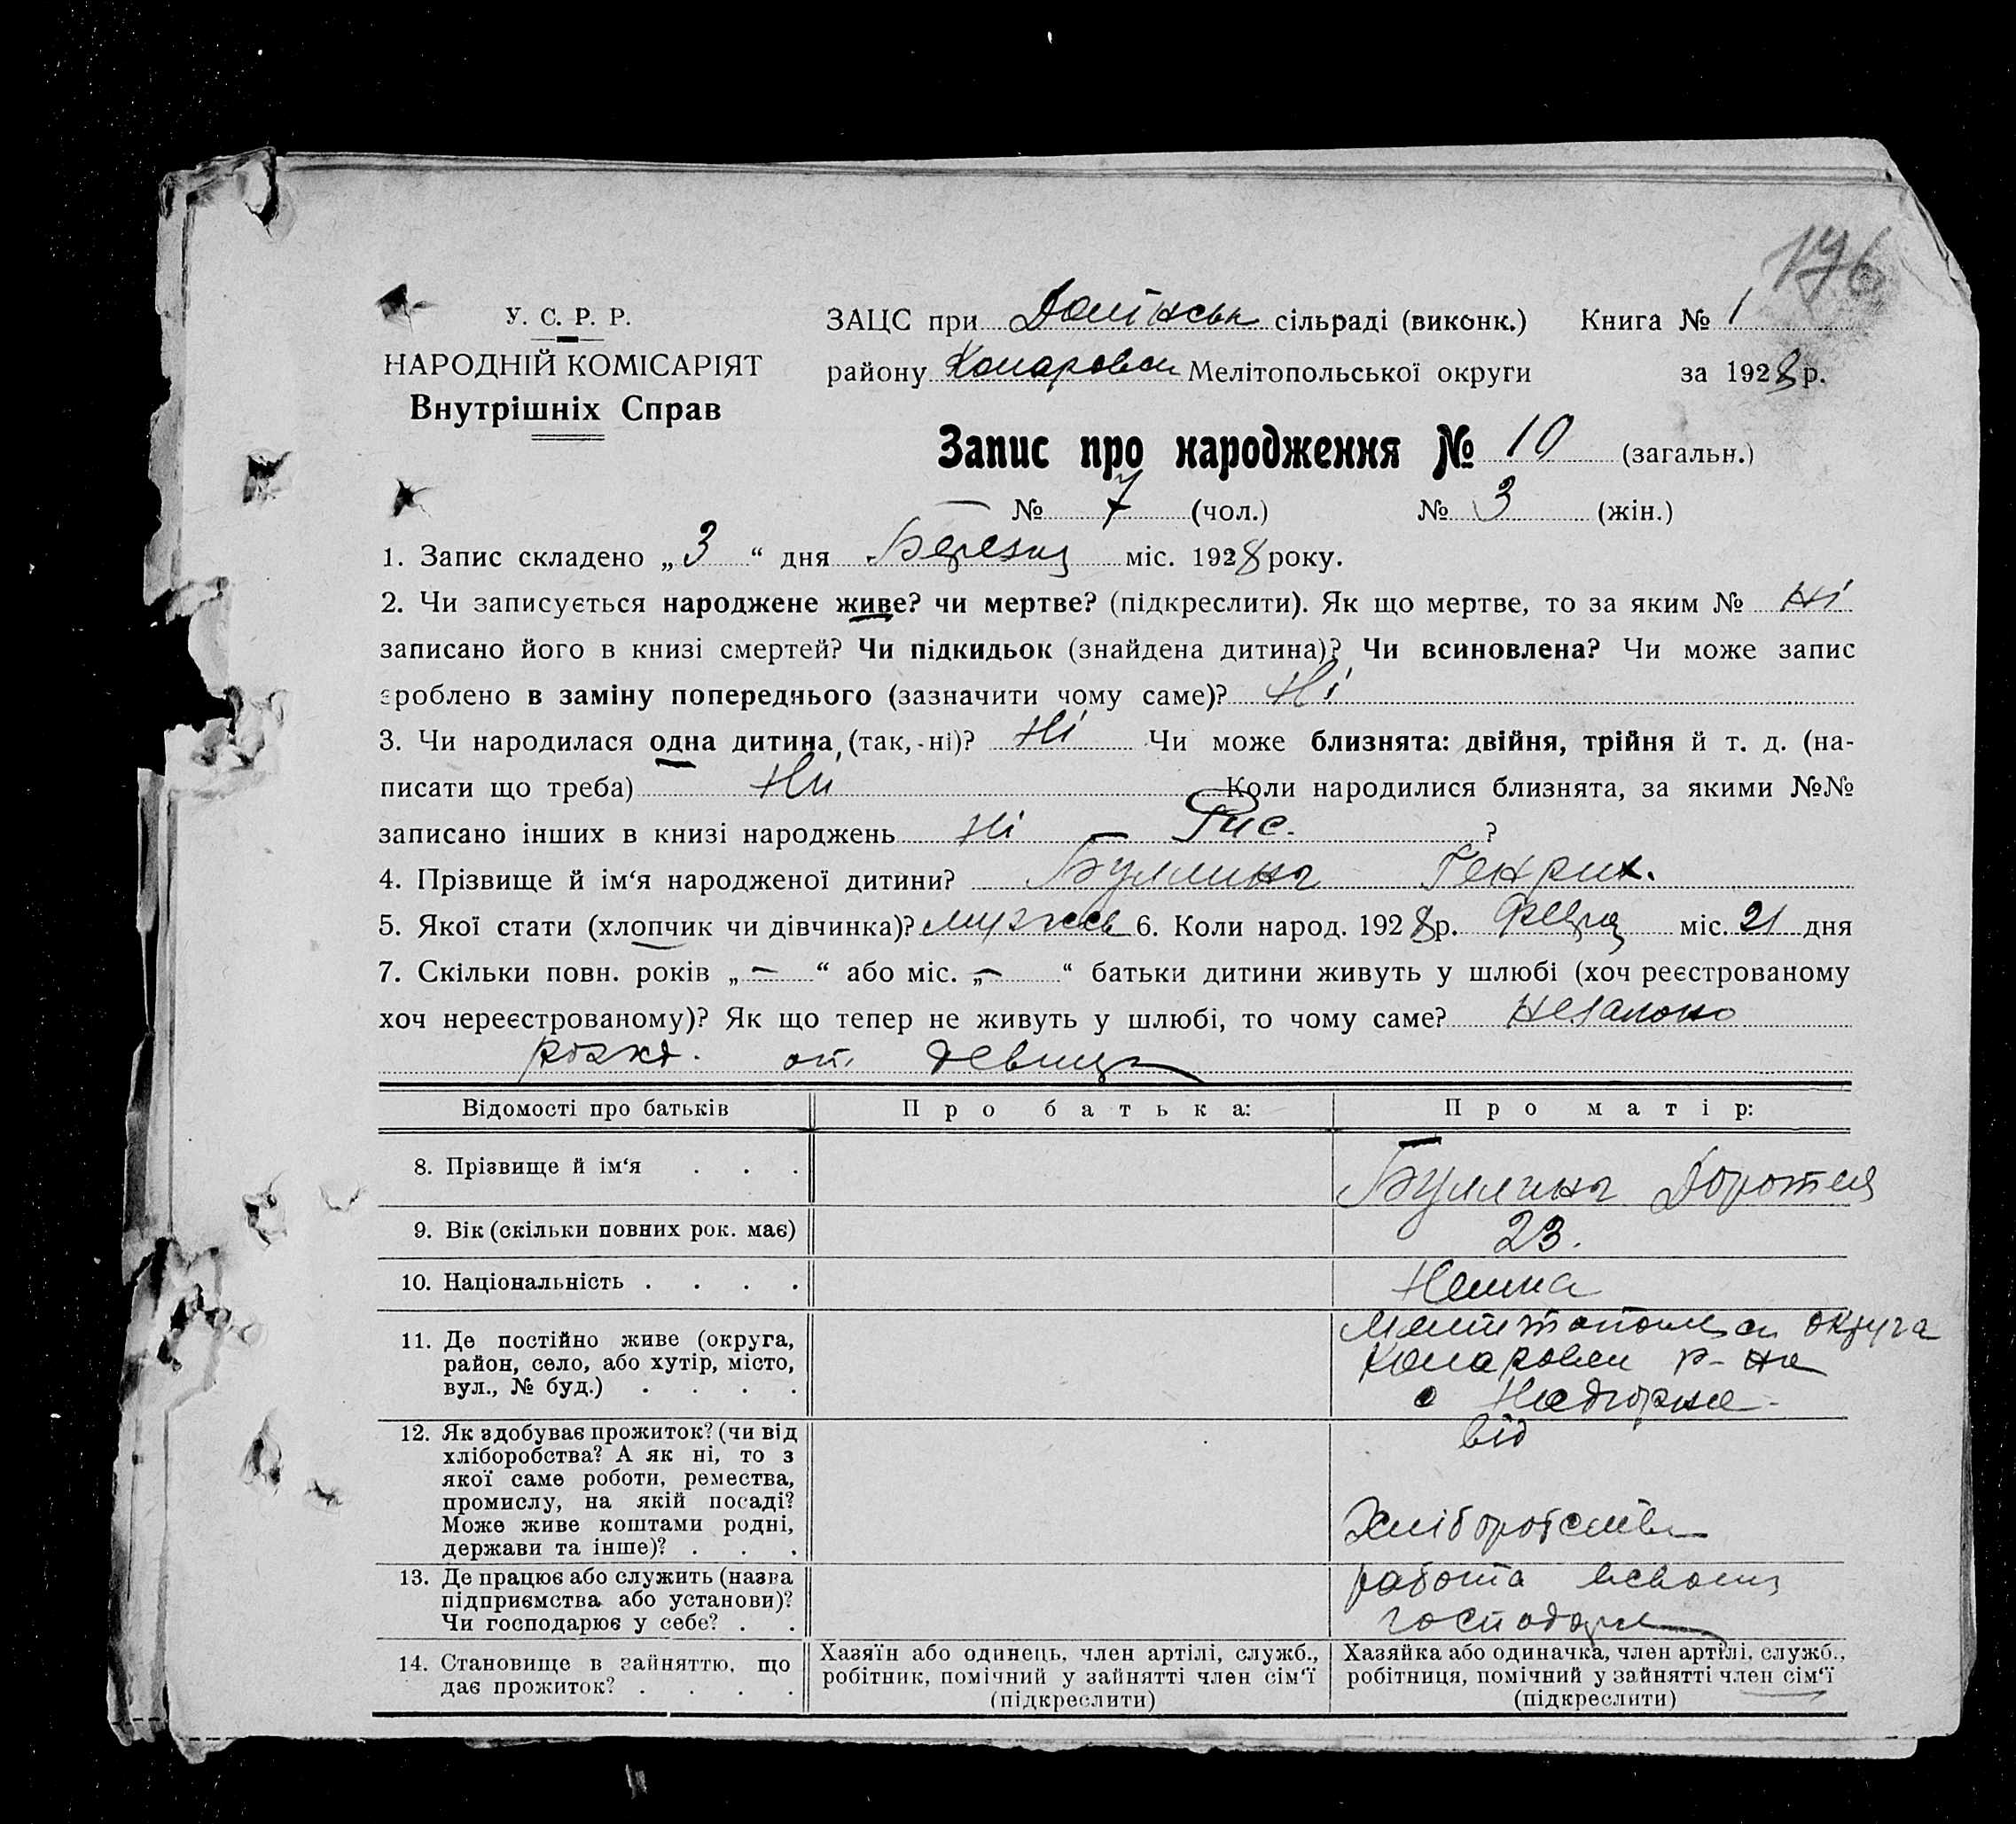 176
У. С. Р. Р.
НАРОДНІЙ КОМІСАРІЯТ
Внутрішніх Справ
ЗАЦС при Долінськ сільраді (виконк.) Книга № 1
району Мелітопольської округи за 1928 р.
Запис про народження № 10 (загальн.)
№ 7 (чол.) № 3 (жін.)
1. Запис складено „3“ дня Березня міс. 1928 року.
2. Чи записується народжене живе? чи мертве? (підкреслити). Як що мертве, то за яким № Ні
записано його в книзі смертей? Чи підкидьок (знайдена дитина)? Чи всиновлена? Чи може запис
зроблено в заміну попереднього (зазначити чому саме)? Ні
3. Чи народилася одна дитина (так,-ні)? Ні Чи може близнята: двійня, трійня й т. д. (на-
писати що треба) Ні Коли народилися близнята, за якими №№
записано інших в книзі народжень Ні — ?
4. Прізвище й ім‘я народженої дитини? Генрих.
5. Якої стати (хлопчик чи дівчинка)? 6. Коли народ. 1928 р. міс. 21 дня
7. Скільки повн. років „—“ або міс. „—“ батьки дитини живуть у шлюбі (хоч реєстрованому
хоч нереєстрованому)? Як що тепер не живуть у шлюбі, то чому саме?
от девици
Відомості про батьків Про батька: Про матір:
8. Прізвище й ім‘я . . . Доротея
9. Вік (скільки повних рок. має) 23.
10. Національність . . . . Немка
11. Де постійно живе (округа,
район, село, або хутір, місто,
вул., № буд.) . . . .
округа
р-на
с Надгорна
12. Як здобуває прожиток? (чи від
хліборобства? А як ні, то з
якої саме роботи, ремества,
промислу, на якій посаді?
Може живе коштами родні,
держави та інше)? . . .
від
Хліборобства
13. Де працює або служить (назва
підприємства або установи)?
Чи господарює у себе? . .
работа
14. Становище в зайняттю, що
дає прожиток? . . . .
Хазяїн або одинець, член артілі, служб.,
робітник, помічний у зайнятті член сім‘ї
(підкреслити)
Хазяйка або одиначка, член артілі, служб.,
робітниця, помічний у зайнятті член сім‘ї
(підкреслити)